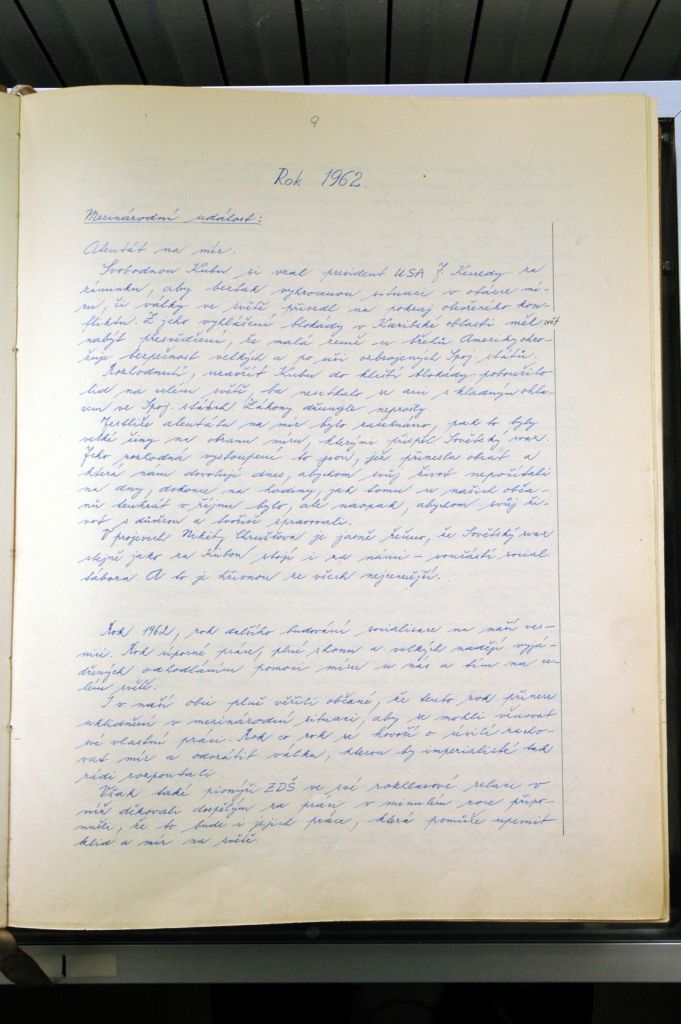 9
Rok 1962.
Mezinárodní událost:
Atentát na mír.
Svobodnou Kubu si vzal president USA J. Kenedy za
záminku, aby beztak vyhrocenou situaci v otázce mí-
ru, či války ve světě přivedl na pokraj otevřeného kon-
fliktu. Z jeho vyhlášení blokády v Karibské oblasti měl svět
nabýt přesvědčení, že malá země u břehů Ameriky ohro-
žuje bezpečnost velkých a po uši ozbrojených Spoj. států.
Rozhodnutí, uzavřít Kubu do kleští blokády pobouřilo
lid na celém světě, ba nesetkalo se ani s kladným ohla-
sem ve Spoj. státech. Zákony džungle neprošly.
Jestliže atentátu na mír bylo zabráněno, pak to byly
velké činy na obranu míru, kterými přispěl Sovětský svaz.
Jeho rozhodná vystoupení to jsou, jež přinesla obrat a
která nám dovolují dnes, abychom svůj život nepočítali
na dny, dokonce na hodiny, jak tomu u našich obča-
nů tenkrát v říjnu bylo, ale naopak, abychom svůj ži-
vot s důvěrou a tvořivě spravovali.
V projevech Nikity Chruščova je jasně řečeno, že Sovětský svaz
stejně jako za Kubou stojí i za námi – součástí social.
tábora. A to je hřivnou ze všech nejcennější.
Rok 1962, rok dalšího budování socialisace na naší ves-
nici. Rok úporné práce, plné shonu a velkých nadějí vyjá-
dřených odhodláním pomoci míru u nás a tím na ce-
lém světě.
I v naší obci plně věřili občané, že tento rok přinese
uklidnění v mezinárodní situaci, aby se mohli věnovat
své vlastní práci. Rok co rok se hovoří o úsilí zacho-
vat mír a odvrátit válku, kterou by imperialisté tak
rádi rozpoutali.
Však také pionýři ZDŠ ve své rozhlasové relaci v
níž děkovali dospělým za práci v minulém roce připo-
mněli, že to bude i jejich práce, která pomůže upevnit
klid a mír na světě.